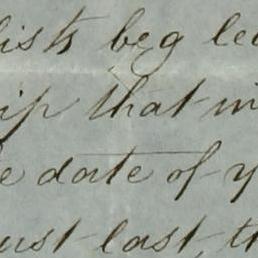 lists beg lea
ip that in
e date of y
ust last, th